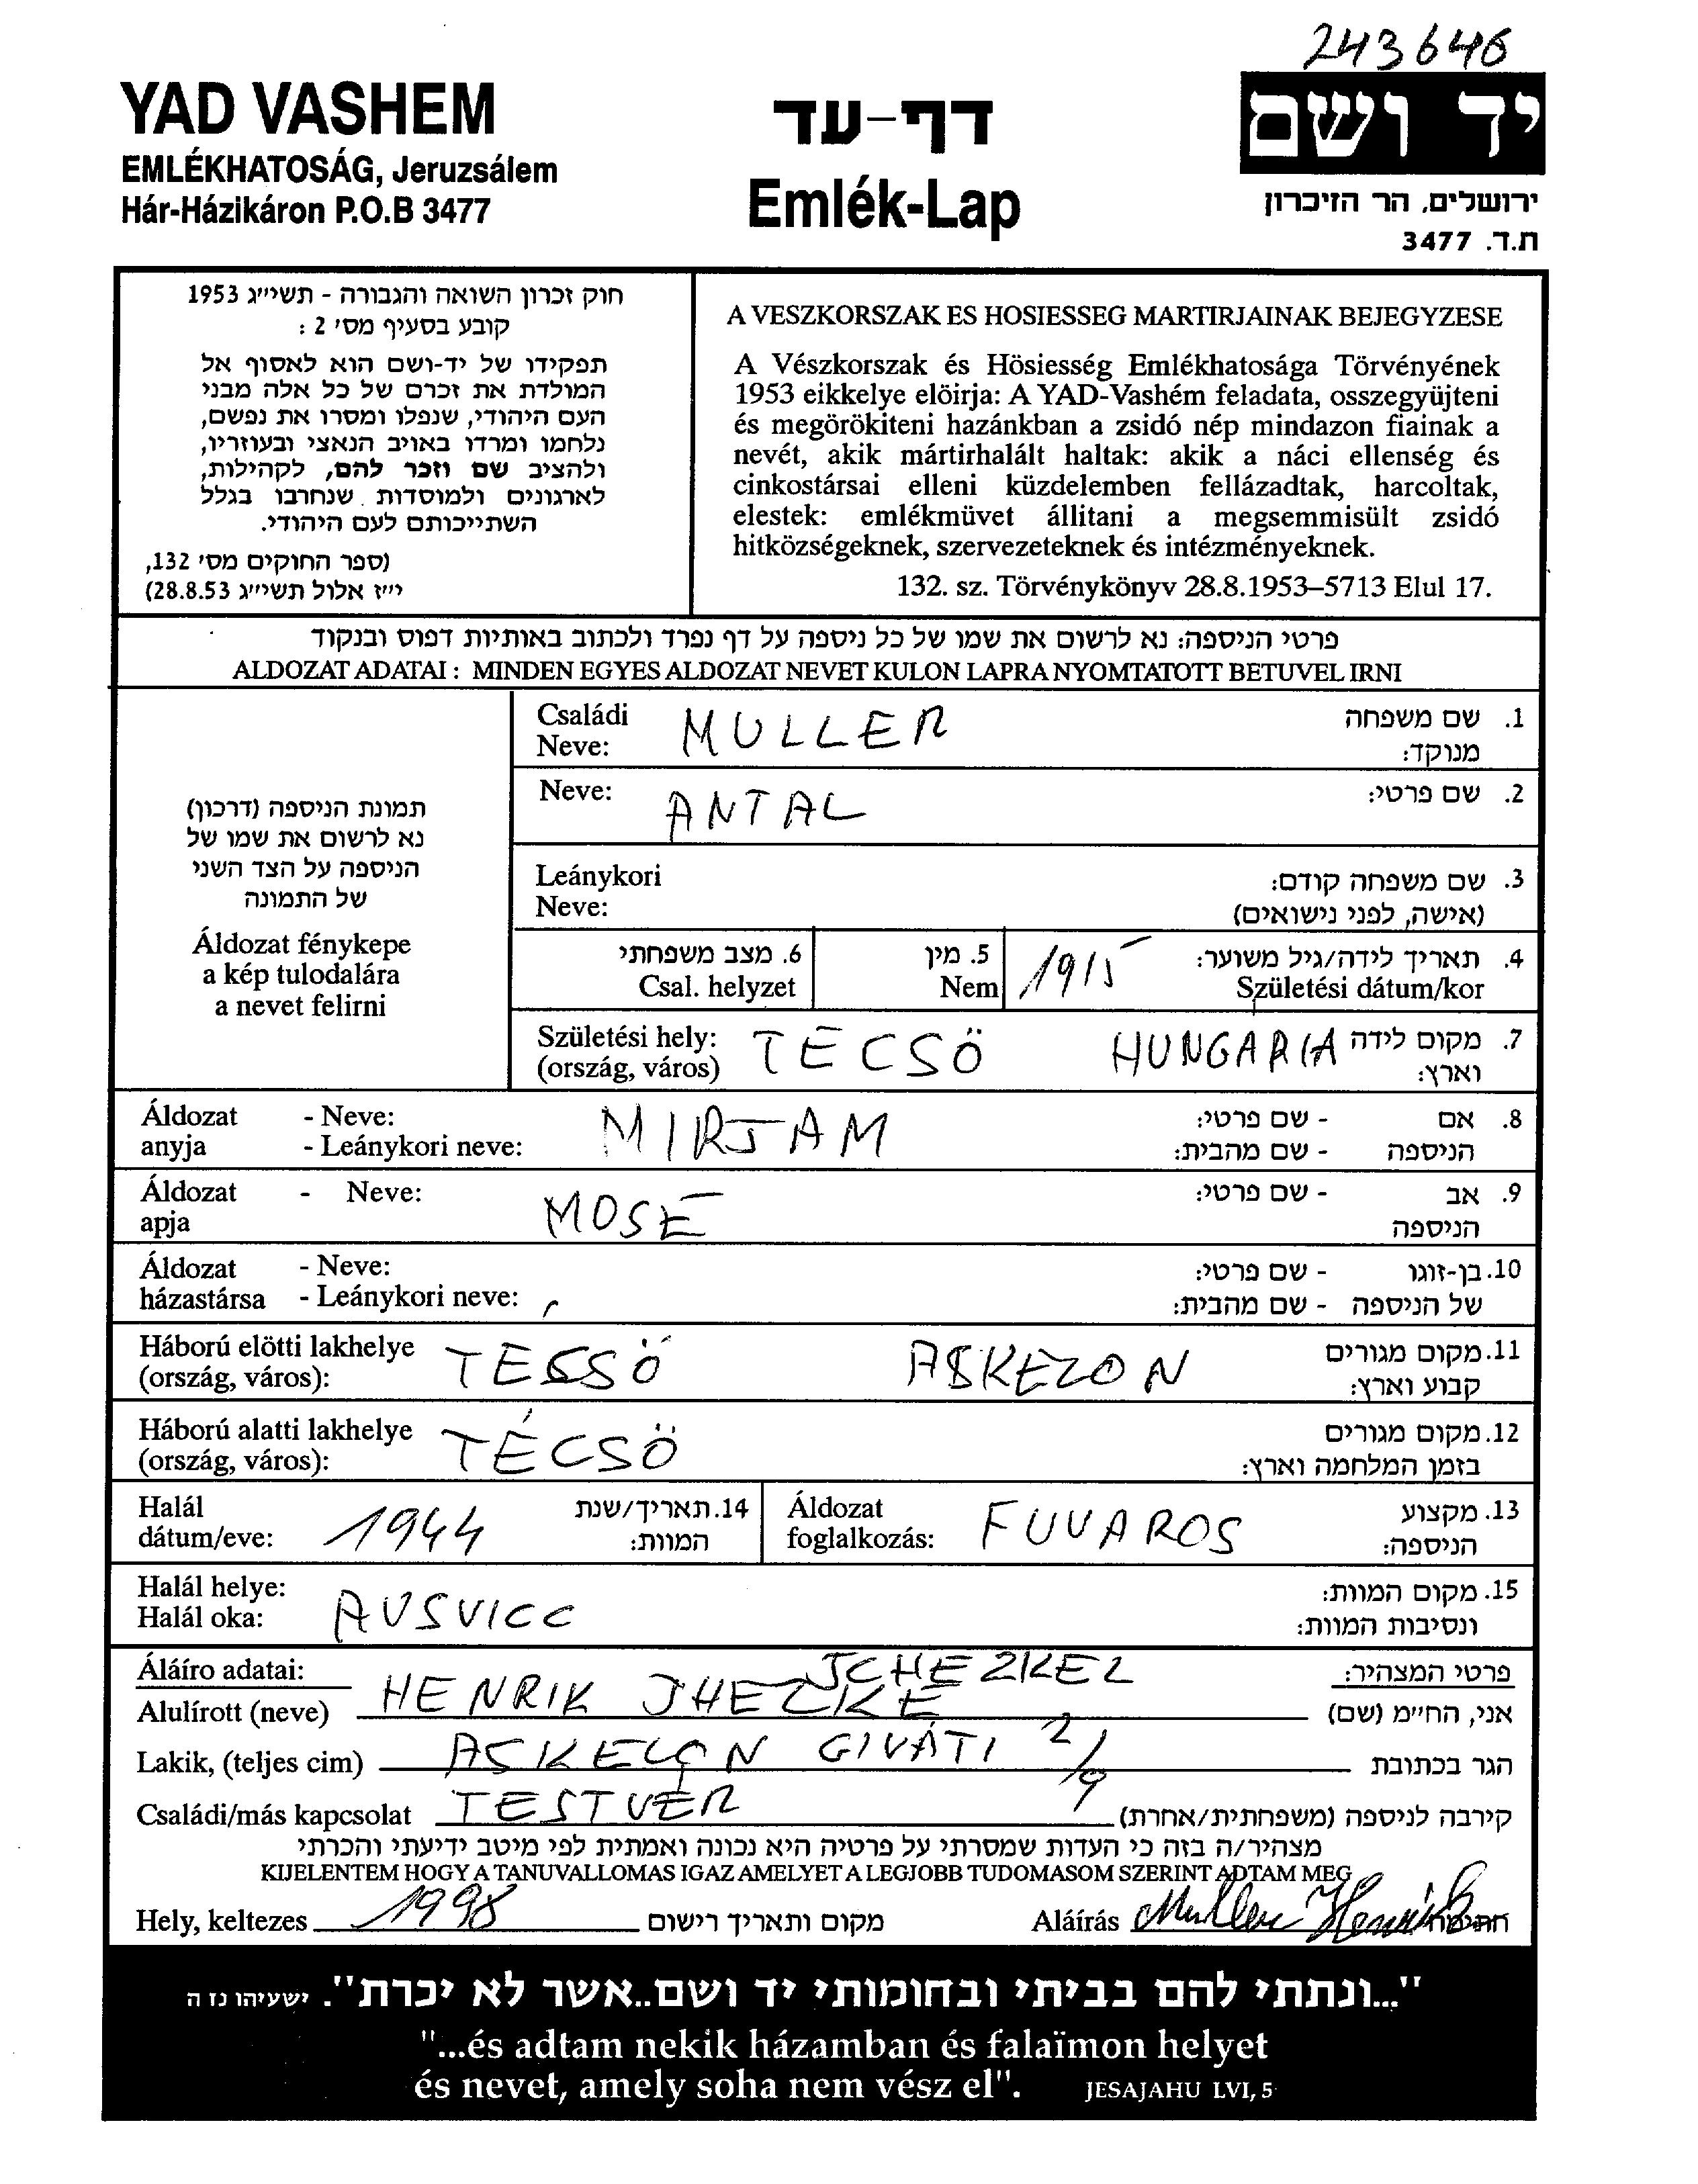 243646
YAD VASHEM
EMLÉKHATOSÁG, Jeruzsálem
Hár-Házikáron P.O.B 3477
דף-עד
Emlék-Lap
יד ושם
ירושלים, הר הזיכרון
ת.ד. 3477
חוק זכרון השואה והגבורה - תשי״ג 1953
קובע בסעיף מס׳ 2 :
תפקידו של יד-ושם הוא לאסוף אל
המולדת את זכרם של כל אלה מבני
העם היהודי, שנפלו ומסרו את נפשם,
נלחמו ומרדו באויב הנאצי ובעוזריו,
ולהציב שם וזכר להם, לקהילות,
לארגונים ולמוסדות שנחרבו בגלל
השתייכותם לעם היהודי.
(ספר החוקים מס׳ 132,
י״ז אלול תשי״ג 28.8.53)
A VESZKORSZAK ES HOSIESSEG MARTIRJAINAK BEJEGYZESE
A Vészkorszak és Hösiesség Emlékhatosága Törvényének
1953 eikkelye elöirja: A YAD-Vashém feladata, osszegyüjteni
és megörökiteni hazánkban a zsidó nép mindazon fiainak a
nevét, akik mártirhalált haltak: akik a náci ellenség és
cinkostársai elleni küzdelemben fellázadtak, harcoltak,
elestek: emlékmüvet állitani a megsemmisült zsidó
hitközségeknek, szervezeteknek és intézményeknek.
132. sz. Törvénykönyv 28.8.1953–5713 Elul 17.
פרטי הניספה: נא לרשום את שמו של כל ניספה על דף נפרד ולכתוב באותיות דפוס ובנקוד
ALDOZAT ADATAI : MINDEN EGYES ALDOZAT NEVET KULON LAPRA NYOMTATOTT BETUVEL IRNI
תמונת הניספה (דרכון)
נא לרשום את שמו של
הניספה על הצד השני
של התמונה
Áldozat fénykepe
a kép tulodalára
a nevet felirni
Családi
Neve: MULLER
1. שם משפחה
מנוקד:
Neve: ANTAL
2. שם פרטי:
Leánykori
Neve:
3. שם משפחה קודם:
(אישה, לפני נישואים)
6. מצב משפחתי
Csal. helyzet
5. מין
Nem
1915
4. תאריך לידה/גיל משוער:
Születési dátum/kor
Születési hely:
(ország, város) TÉCSÖ HUNGARIA
7. מקום לידה
וארץ:
Áldozat - Neve:
anyja - Leánykori neve: MIRJAM
8. אם - שם פרטי:
הניספה - שם מהבית:
Áldozat - Neve:
apja MOSE
9. אב - שם פרטי:
הניספה
Áldozat - Neve:
házastársa - Leánykori neve:
10. בן-זוגו - שם פרטי:
של הניספה - שם מהבית:
Háború elötti lakhelye
(ország, város): TESSÖ ASKEZON
11. מקום מגורים
קבוע וארץ:
Háború alatti lakhelye
(ország, város): TÉCSÖ
12. מקום מגורים
בזמן המלחמה וארץ:
Halál
dátum/eve: 1944
14. תאריך/שנת
המוות:
Áldozat
foglalkozás: FUVAROS
13. מקצוע
הניספה:
Halál helye:
Halál oka: AUSVICC
15. מקום המוות:
ונסיבות המוות:
Áláíro adatai:
פרטי המצהיר:
JCHEZKEL
Alulírott (neve) HENRIK JHEZKE
אני, הח״מ (שם)
Lakik, (teljes cim) ASKELON GIVÁTI 2/9
הגר בכתובת
Családi/más kapcsolat TESTVÉR
קירבה לניספה (משפחתית/אחרת)
מצהיר/ה בזה כי העדות שמסרתי על פרטיה היא נכונה ואמתית לפי מיטב ידיעתי והכרתי
KIJELENTEM HOGY A TANUVALLOMAS IGAZ AMELYET A LEGJOBB TUDOMASOM SZERINT ADTAM MEG
Hely, keltezes 1998 מקום ותאריך רישום
Aláírás Muller Henrik חתימה
"...ונתתי להם בביתי ובחומותי יד ושם..אשר לא יכרת". ישעיהו נז ה
"...és adtam nekik házamban és falaïmon helyet
és nevet, amely soha nem vész el". JESAJAHU LVI, 5